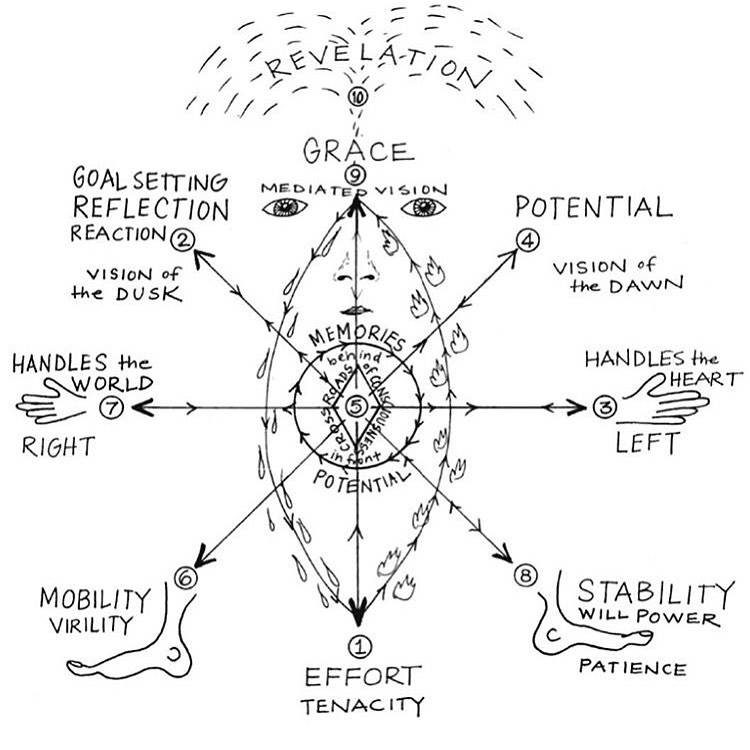 REVELATION
10
GRACE
9
MEDIATED VISION
GOAL SETTING
REFLECTION
REACTION 2
VISION of
the DUSK
POTENTIAL
4
VISION of
the DAWN
MEMORIES
behind
CROSS ROADS
of CONSCIOUSNESS
5
in front
POTENTIAL
HANDLES the
WORLD
7
RIGHT
HANDLES the
HEART
3
LEFT
6
MOBILITY
VIRILITY
8
STABILITY
WILL POWER
PATIENCE
1
EFFORT
TENACITY